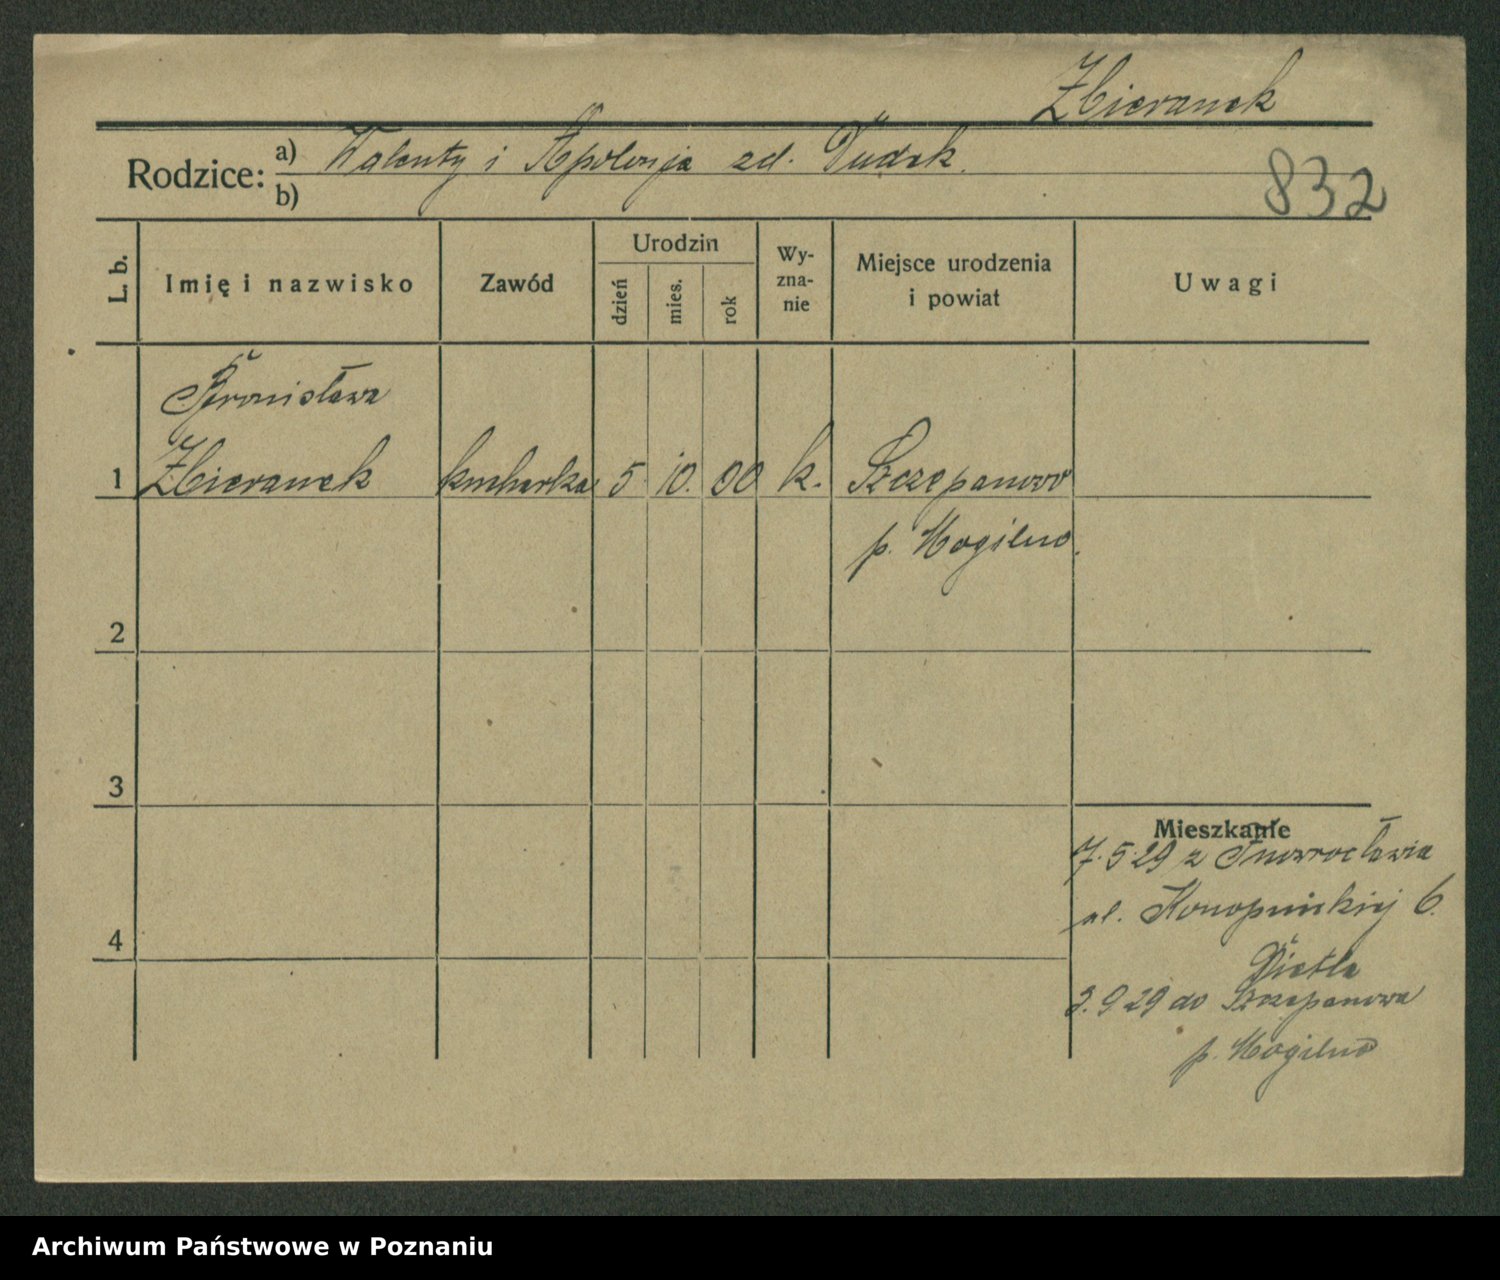 Zbieranek
Rodzice: a) Walenty i Apolonja zd. Dudek.
b)
832
L. b.
Imię i nazwisko
Zawód
Urodzin
dzień
mies.
rok
Wy-
zna-
nie
Miejsce urodzenia
i powiat
Uwagi
Bronisława
1 Zbieranek kucharka 5. 10. 00 k. Szczepanowo
p. Mogilno.
2
3
Mieszkanie
7.5.29 z Inowrocławia
ul. Konopnickiej 6.
4
3.9.29 do Szczepanowa
p. Mogilno
Archiwum Państwowe w Poznaniu